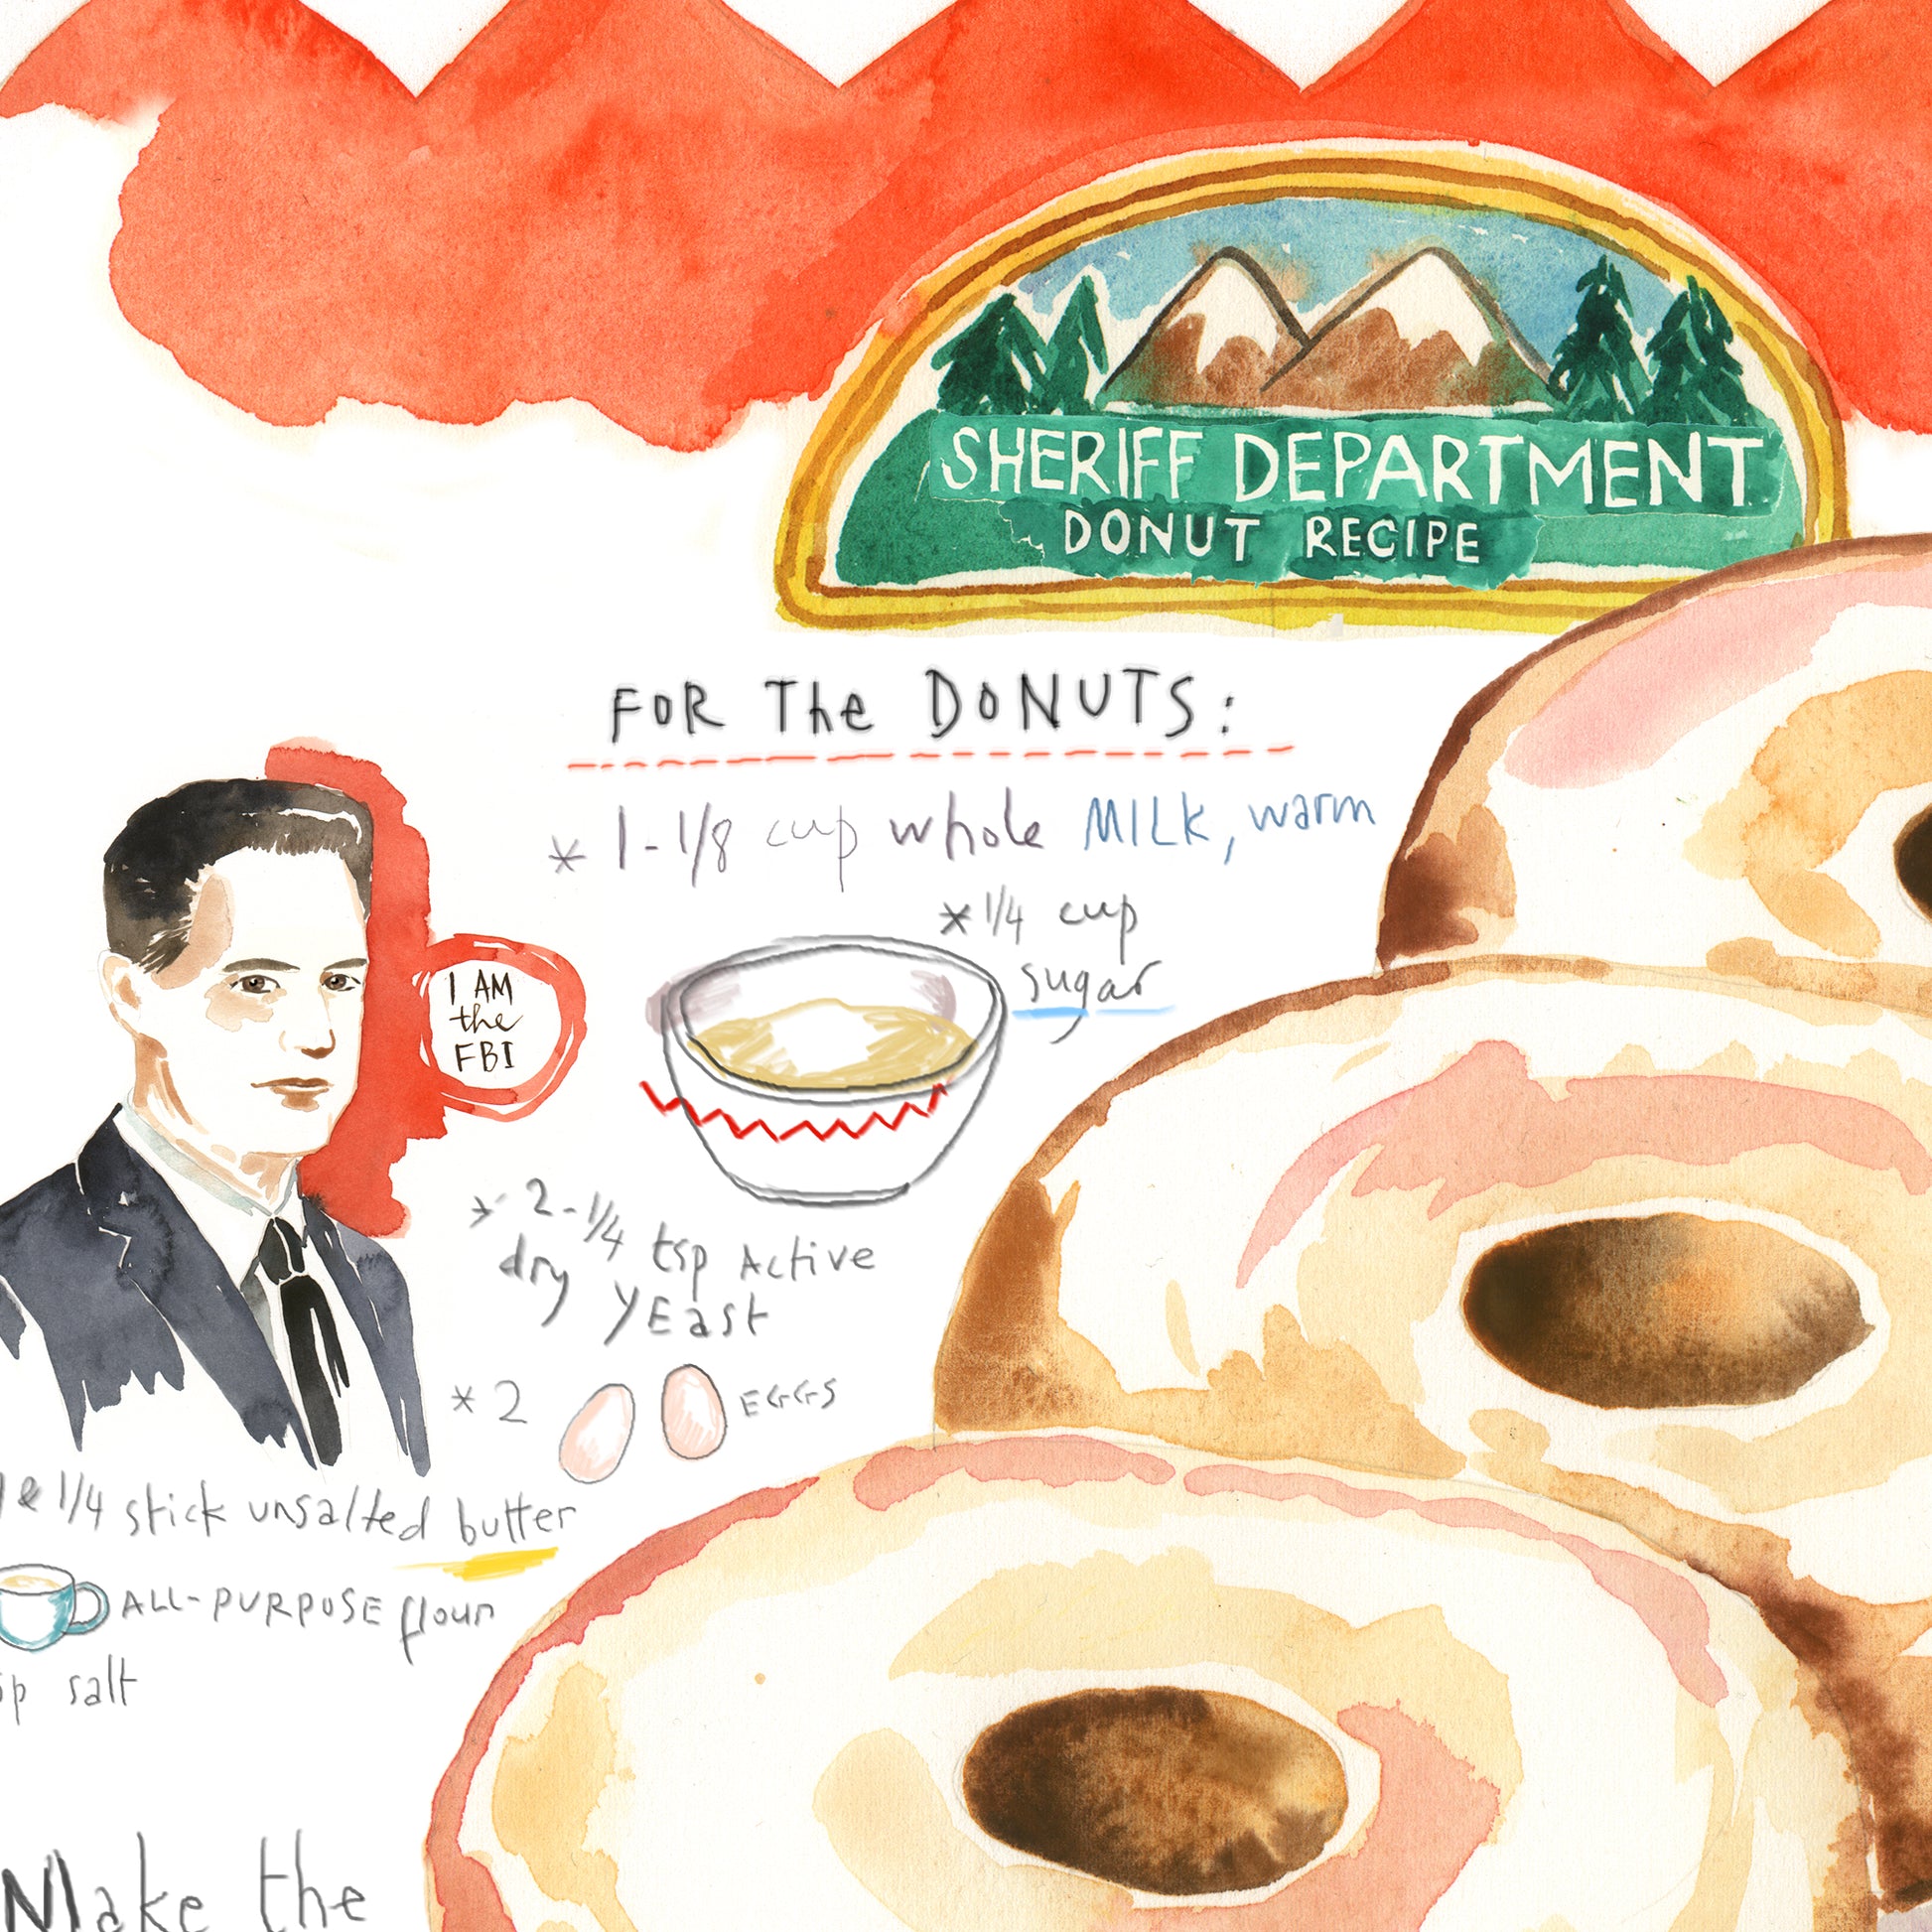 SHERIFF DEPARTMENT
DONUT RECIPE
FOR The DONUTS:
* 1-1/8 cup whole MILK, warm
* 1/4 cup
sugar
I AM
the
FBI
* 2-1/4 tsp Active
dry YEast
* 2 EGGS
1 & 1/4 stick unsalted butter
ALL-PURPOSE flour
salt
Make the